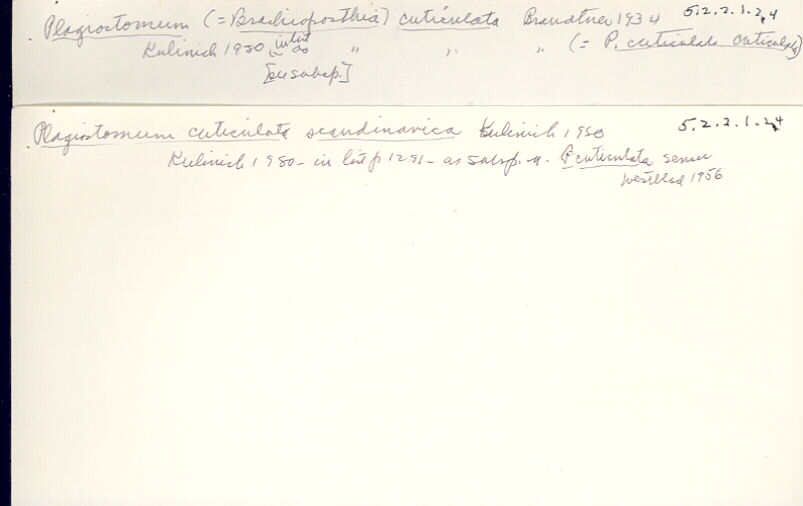 Plagiostomum (= Brachioposthia) cuticulata Brandtner 1934 5.2.2.1.2,4
Kulinich 1980 in list as " " " (= P. cuticulata cuticulata)
[as subsp.]
Plagiostomum cuticulata scandinavica Kulinich 1980 5.2.2.1.2,4
Kulinich 1980 - in list p 1291 - as subsp. n. P cuticulata sensu
Westblad 1956